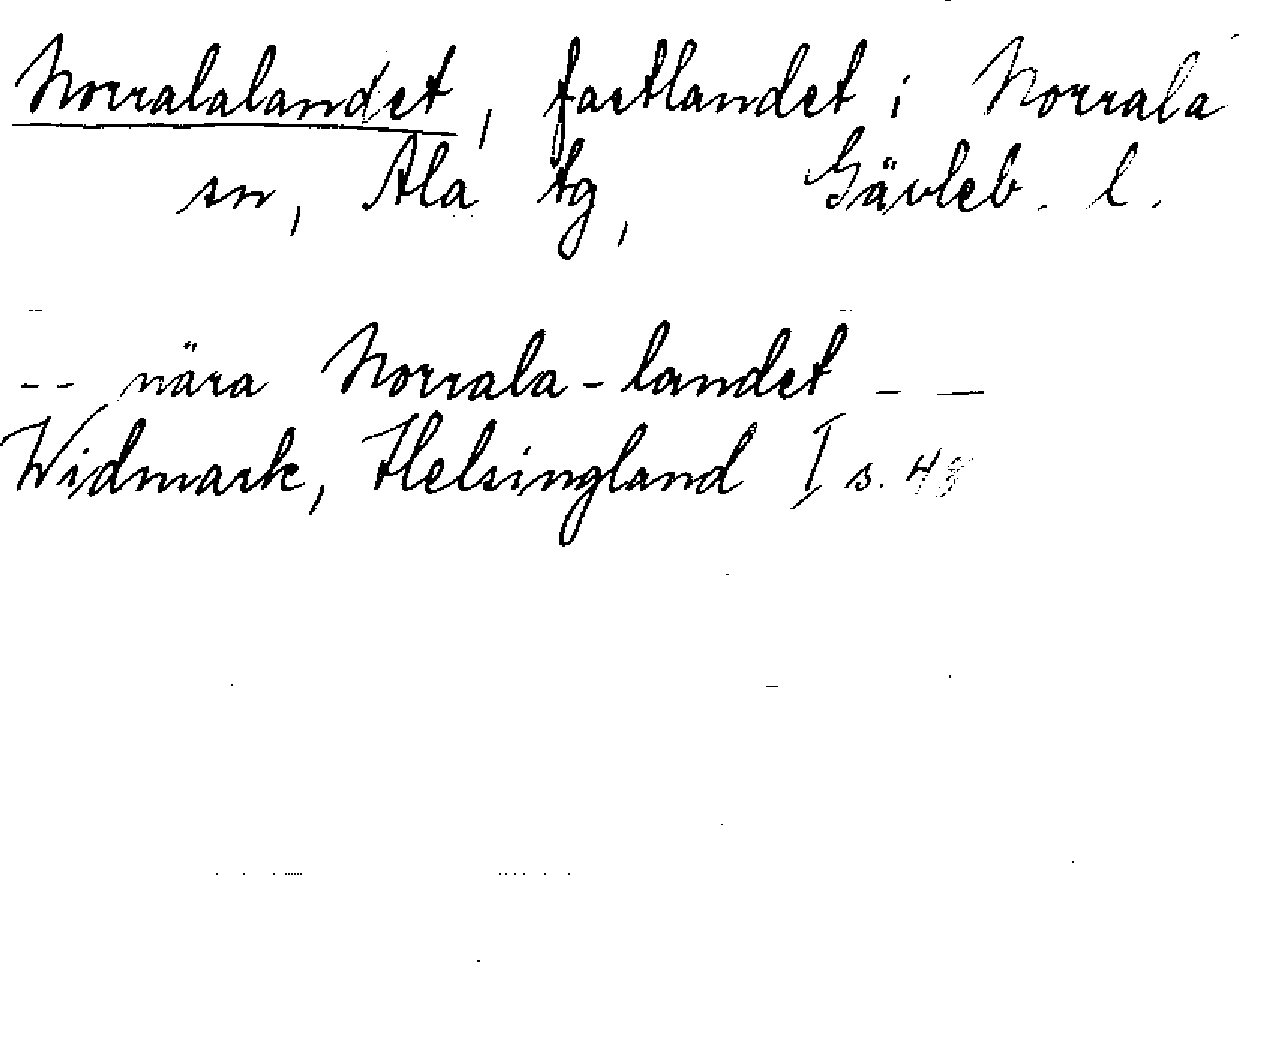 Norralalandet, fastlandet i Norrala
sn, Ala tg, Gävleb. l.
-- nära Norrala-landet - -
Widmark, Helsingland I s.